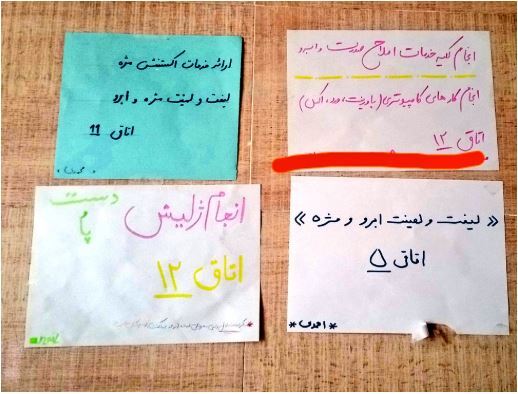 ارائه خدمات اکستنشن مژه
لیفت و لمینت مژه و ابرو
اتاق 11
انجام کلیه خدمات اصلاح صورت و ابرو
انجام کارهای کامپیوتری (پاورپوینت، ورد، اکسل)
اتاق ۱۲
دست
پا
انجام ژلیش
اتاق ۱۲
«لیفت و لمینت ابرو و مژه»
اتاق ۵
* احمدی *